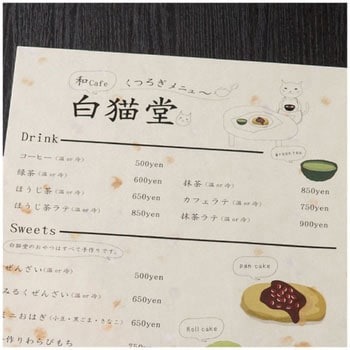 和Cafe
くつろぎメニュ〜
白猫堂
Drink
green tea
コーヒー（温 or 冷） 500yen
緑茶（温 or 冷） 600yen
ほうじ茶（温 or 冷） 650yen
ほうじ茶ラテ（温 or 冷） 850yen
抹茶（温 or 冷） 850yen
カフェラテ（温 or 冷） 750yen
抹茶ラテ（温 or 冷） 900yen
Sweets
白猫堂のおやつはすべて手作りです。
ぜんざい（温 or 冷） 500yen
みるくぜんざい（温 or 冷） 650yen
ミニおはぎ（小豆・黒ごま・きなこ） 650yen
手作りわらびもち
pan cake
Roll cake